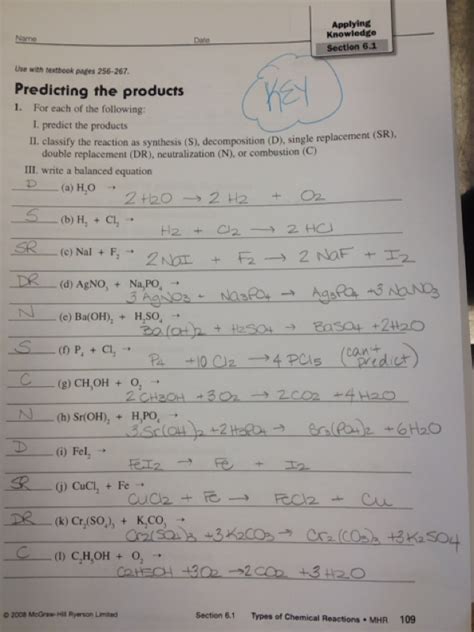 Name Date
Applying
Knowledge
Section 6.1
Use with textbook pages 256-267.
Predicting the products
KEY
1. For each of the following:
I. predict the products
II. classify the reaction as synthesis (S), decomposition (D), single replacement (SR),
double replacement (DR), neutralization (N), or combustion (C)
III. write a balanced equation
D (a) H₂O →
2 H2O → 2 H2 + O2
S (b) H₂ + Cl₂ →
H2 + Cl2 → 2 HCl
SR (c) NaI + F₂ →
2 NaI + F2 → 2 NaF + I2
DR (d) AgNO₃ + Na₃PO₄ →
3 AgNO3 + Na3PO4 → Ag3PO4 + 3 NaNO3
N (e) Ba(OH)₂ + H₂SO₄ →
Ba(OH)2 + H2SO4 → BaSO4 + 2H2O
S (f) P₄ + Cl₂ →
P4 + 10 Cl2 → 4 PCl5 (can't predict)
C (g) CH₃OH + O₂ →
2 CH3OH + 3O2 → 2CO2 + 4H2O
N (h) Sr(OH)₂ + H₃PO₄ →
3Sr(OH)2 + 2H3PO4 → Sr3(PO4)2 + 6H2O
D (i) FeI₂ →
FeI2 → Fe + I2
SR (j) CuCl₂ + Fe →
CuCl2 + Fe → FeCl2 + Cu
DR (k) Cr₂(SO₄)₃ + K₂CO₃ →
Cr2(SO4)3 + 3K2CO3 → Cr2(CO3)3 + 3K2SO4
C (l) C₂H₅OH + O₂ →
C2H5OH + 3O2 → 2CO2 + 3H2O
© 2008 McGraw-Hill Ryerson Limited Section 6.1 Types of Chemical Reactions • MHR 109